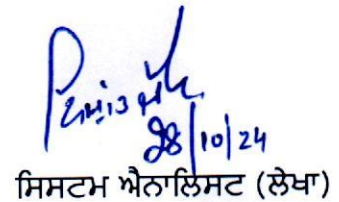 28/10/24
ਸਿਸਟਮ ਐਨਾਲਿਸਟ (ਲੇਖਾ)